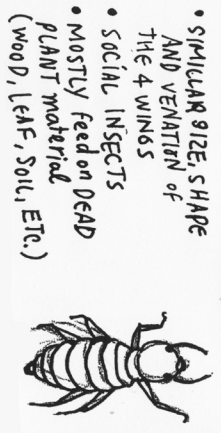 • SIMILLAR SIZE, SHAPE
AND VENATION of
THE 4 WINGS
• SOCIAL INSECTS
• MOSTLY feed on DEAD
PLANT material
(WOOD, LEAF, SOIL, ETC.)